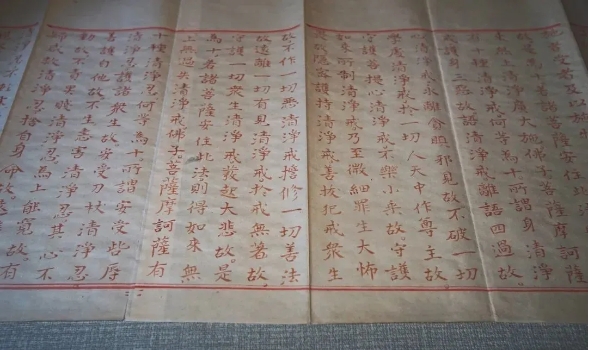 受者及以施
為十若諸菩薩安住此法
清淨廣大施佛子菩薩摩訶薩
有十種清淨戒何等為十所謂身清淨
戒護身三惡故語清淨戒離語四過故
心清淨戒永離貪瞋邪見故不破一切
學處清淨戒於一切人天中作尊主故
守護菩提心清淨戒不樂小乘故守護
如來所制清淨戒乃至微細罪生大怖
畏故隱密護持清淨戒善拔犯戒眾生
故不作一切惡清淨戒誓修一切善法
故遠離一切有見清淨戒於戒無著故
守護一切眾生清淨戒發起大悲故是
為十若諸菩薩安住此法則得如來無
上無過失清淨戒佛子菩薩摩訶薩有
十種清淨忍何等為十所謂安受呰辱
清淨忍護諸眾生故安受刀杖清淨忍
善護自他故不生恚害清淨忍其心不
動故不責卑賤清淨忍為上能寬故有
歸咸救清淨忍捨自身命故